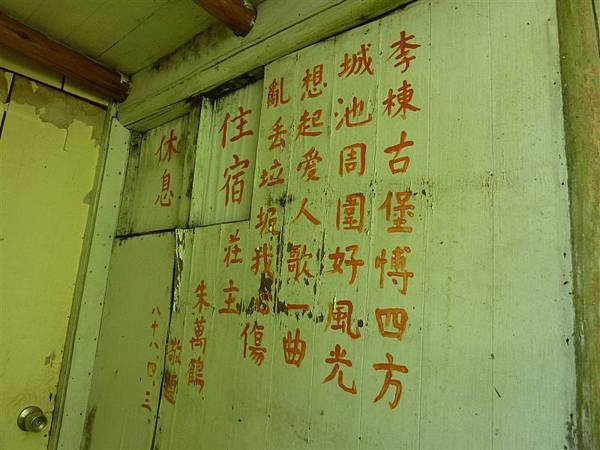 李棟古堡愽四方
城池周圍好風光
想起愛人歌一曲
亂丢垃圾我心傷
住宿
莊主
朱萬鶴
敬題
休息
八十八、四、三、